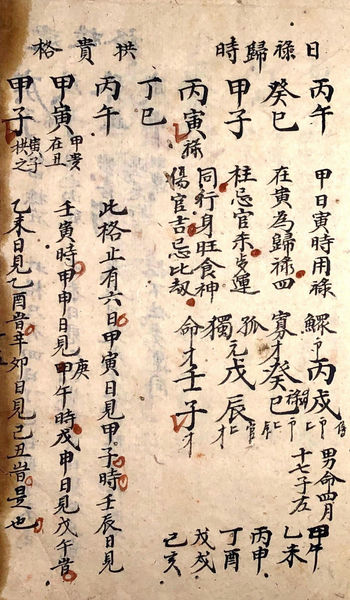 日祿歸時
丙午
癸巳
甲子
丙寅祿
甲日寅時用祿
在寅為歸祿四
柱忌官来歩運
同行身旺食神
傷官吉忌比劫
鰥
寡才
孤
獨元
命才
丙戌
癸巳
戊辰
壬子
男命四月
十七子左
甲午
乙未
丙申
丁酉
戊戌
己亥
拱貴格
丁巳
丙午
甲寅甲亥在丑
甲子寅子拱之
此格止有六日甲寅日見甲子時壬辰日見
壬寅時甲申日見甲午時戊申日見戊午時
庚
乙未日見乙酉時辛卯日見己丑時是也